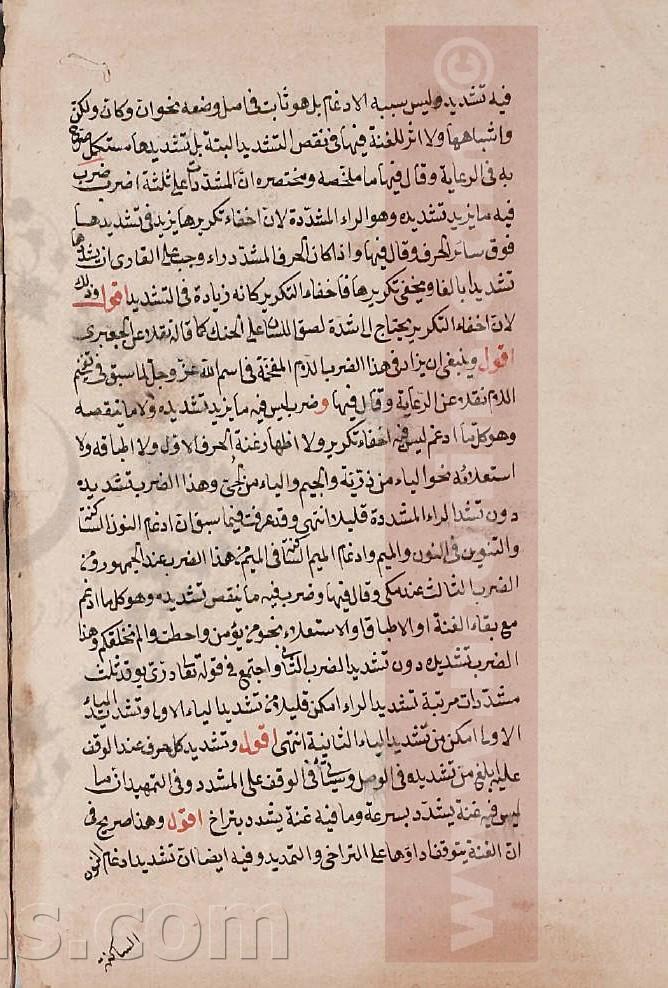 فيه تشديد وليس سببه الادغام بل هو ثابت في اصل وضعه نحو ان وكان ولكن
واشباهها ولا اثر للغنة فيها في نقص التشديد البتة بل تشديدها مستكمل صرح
به في الرعاية وقال فيها ما ملخصه ومختصره ان المشددات على ثلثة اضرب ضرب
فيه ما يزيد تشديده وهو الراء المشددة لان اخفاء تكريرها يزيد في تشديدها
فوق سائر الحرف وقال فيها واذا كان الحرف المشدد راء وجب على القاري ان يشددها
تشديدا بالغا ويخفي تكريرها فاخفاء التكرير كانه زيادة في التشديد اقول وذلك
لان اخفاء التكرير يحتاج الى شدة لصق اللسان على الحنك كما قاله نقلا عن الجعبري
اقول وينبغي ان يزاد في هذا الضرب اللام المفخمة في اسم الله عز وجل لما سبق في تفخيم
اللام نقلا عن الرعاية وقال فيها وضرب ليس فيه ما يزيد تشديده ولا ما ينقصه
وهو كل ما ادغم ليس فيه اخفاء تكرير ولا اظهار غنة الحرف الاول ولا اطباقه ولا
استعلائه نحو الياء من ذرية والجيم والياء من لجي وهذا الضرب تشديده
دون تشد الراء المشددة قليلا انتهى وقد عرفت فيما سبق ان ادغام النون الساكنة
والتنوين في النون والميم وادغام الميم الساكنة في الميم من هذا الضرب عند الجمهور ومن
الضرب الثالث عند مكي وقال فيها وضرب فيه ما ينقص تشديده وهو كل ما ادغم
مع بقاء الغنة او الاطباق او الاستعلاء نحو من يؤمن واحطت والم نخلقكم وهذا
الضرب تشديده دون تشديد الضرب الثاني واجتمع في قوله تعا دري يوقد ثلث
مشددات مرتبة تشديد الراء امكن قليلا من تشديد الياء الاولى وتشديد الياء
الاولى امكن من تشديد الياء الثانية انتهى اقول وتشديد كل حرف عند الوقف
عليه ابلغ من تشديده في الوصل وسيأتي في الوقف على المشدد وفي التمهيد ان ما
ليس فيه غنة يشدد بسرعة وما فيه غنة يشدد بتراخ اقول وهذا صريح في
ان الغنة يتوقف اداؤها على التراخي والتمديد وفيه ايضا ان تشديد ادغام النون
الساكنة